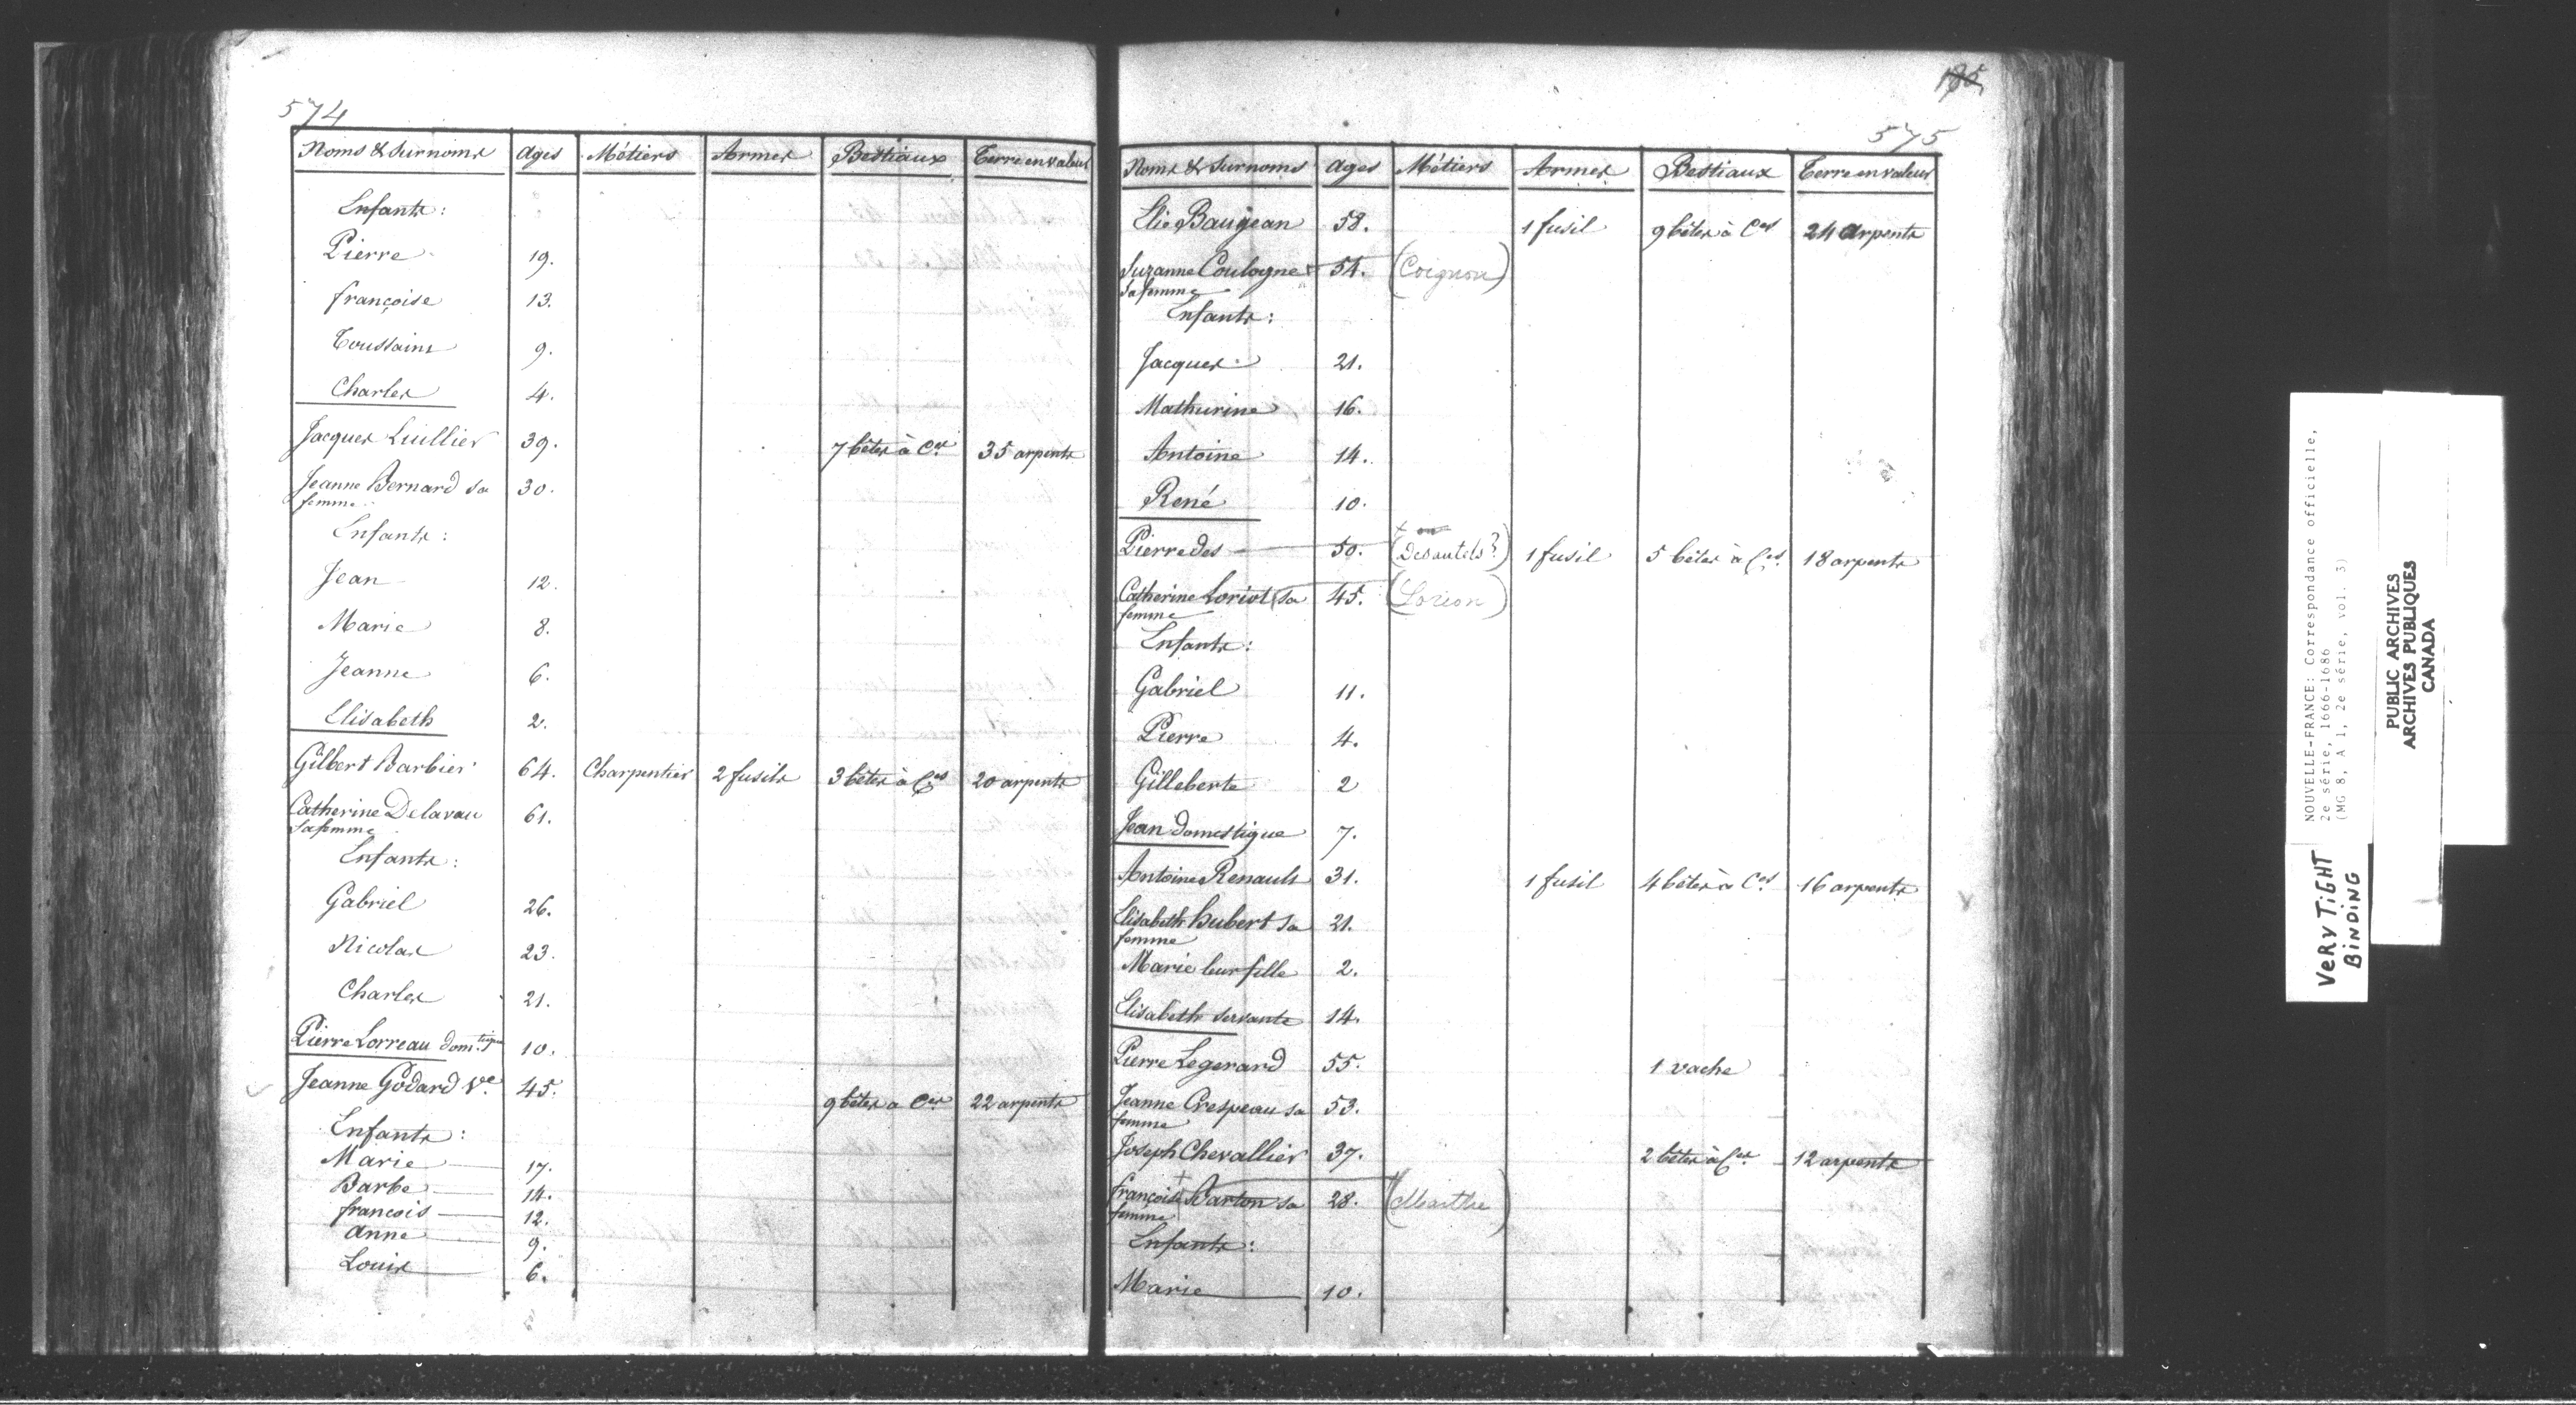 574
Noms & Surnoms Ages Métiers Armes Bestiaux Terre en valeur
Enfants :
Pierre 19.
françoise 13.
Toussaint 9.
Charles 4.
Jacques Luillier 39. 7 bêtes à Ces 35 arpents
Jeanne Bernard sa 30.
femme
Enfants :
Jean 12.
Marie 8.
Jeanne 6.
Elisabeth 2.
Gilbert Barbier 64. Charpentier 2 fusils 3 bêtes à Ces 20 arpents
Catherine Delavau 61.
sa femme
Enfants :
Gabriel 26.
Nicolas 23.
Charles 21.
Pierre Lorreau dom.tique 10.
Jeanne Godard Ve. 45. 9 bêtes a Ces 22 arpents
Enfants :
Marie 17.
Barbe 14.
francois 12.
Anne 9.
Louis 6.
185
575
Noms & Surnoms Ages Métiers Armes Bestiaux Terre en valeur
Elie Baugean 58. 1 fusil 9 bêtes à Ces 24 arpents
Suzanne Coulogne + 54. (Coignou)
sa femme
Enfants :
Jacques 21.
Mathurine 16.
Antoine 14.
René 10.
+ ou
Pierre des 50. (Desautels?) 1 fusil 5 bêtes à Ces 18 arpents
Catherine Loriot sa 45. (Lorion)
femme
Enfants :
Gabriel 11.
Pierre 4.
Gilleberte 2
Jean domestique 7.
Antoine Renault 31. 1 fusil 4 bêtes à Ces 16 arpents
Elisabeth hubert sa 21.
femme
Marie leur fille 2.
Elisabeth servante 14.
Pierre Legerard 55. 1 vache
Jeanne Crespeau sa 53.
femme
Joseph Chevallier 37. 2 bêtes à Ces 12 arpents
françoise + Barton sa 28. (Marthe)
femme
Enfants :
Marie 10.
NOUVELLE-FRANCE: Correspondance officielle,
2e série, 1666-1686
(MG 8, A 1, 2e série, vol. 3)
PUBLIC ARCHIVES
ARCHIVES PUBLIQUES
CANADA
VERY TiGHT
BiNDiNG